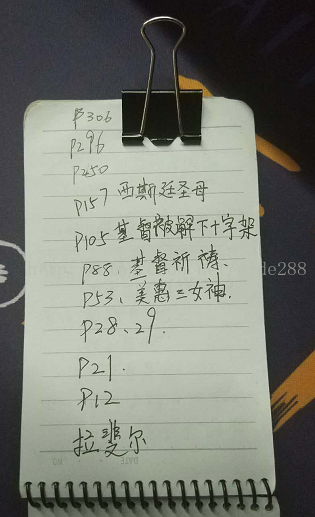 P306
P296
P250
P157 西斯廷圣母
P105 基督被解下十字架
P88、基督祈祷.
P53、美惠三女神.
P28、29.
P21.
P12
拉斐尔
DATE NO
de288